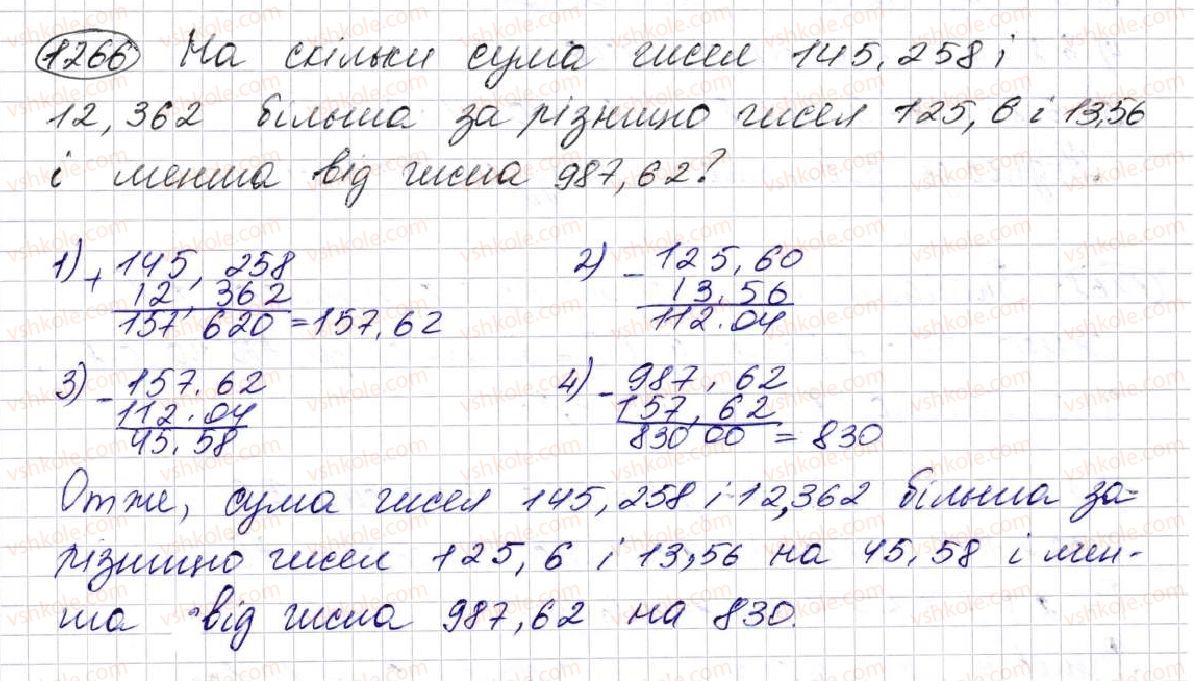 1266 На скільки сума чисел 145,258 і
12,362 більша за різницю чисел 125,6 і 13,56
і менша від числа 987,62?
1) + 145,258
12,362
157,620 = 157,62
2) - 125,60
13,56
112.04
3) - 157.62
112.04
45.58
4) - 987,62
157,62
830 00 = 830
Отже, сума чисел 145,258 і 12,362 більша за
різницю чисел 125,6 і 13,56 на 45,58 і мен-
ша від числа 987,62 на 830.
vshkole.com